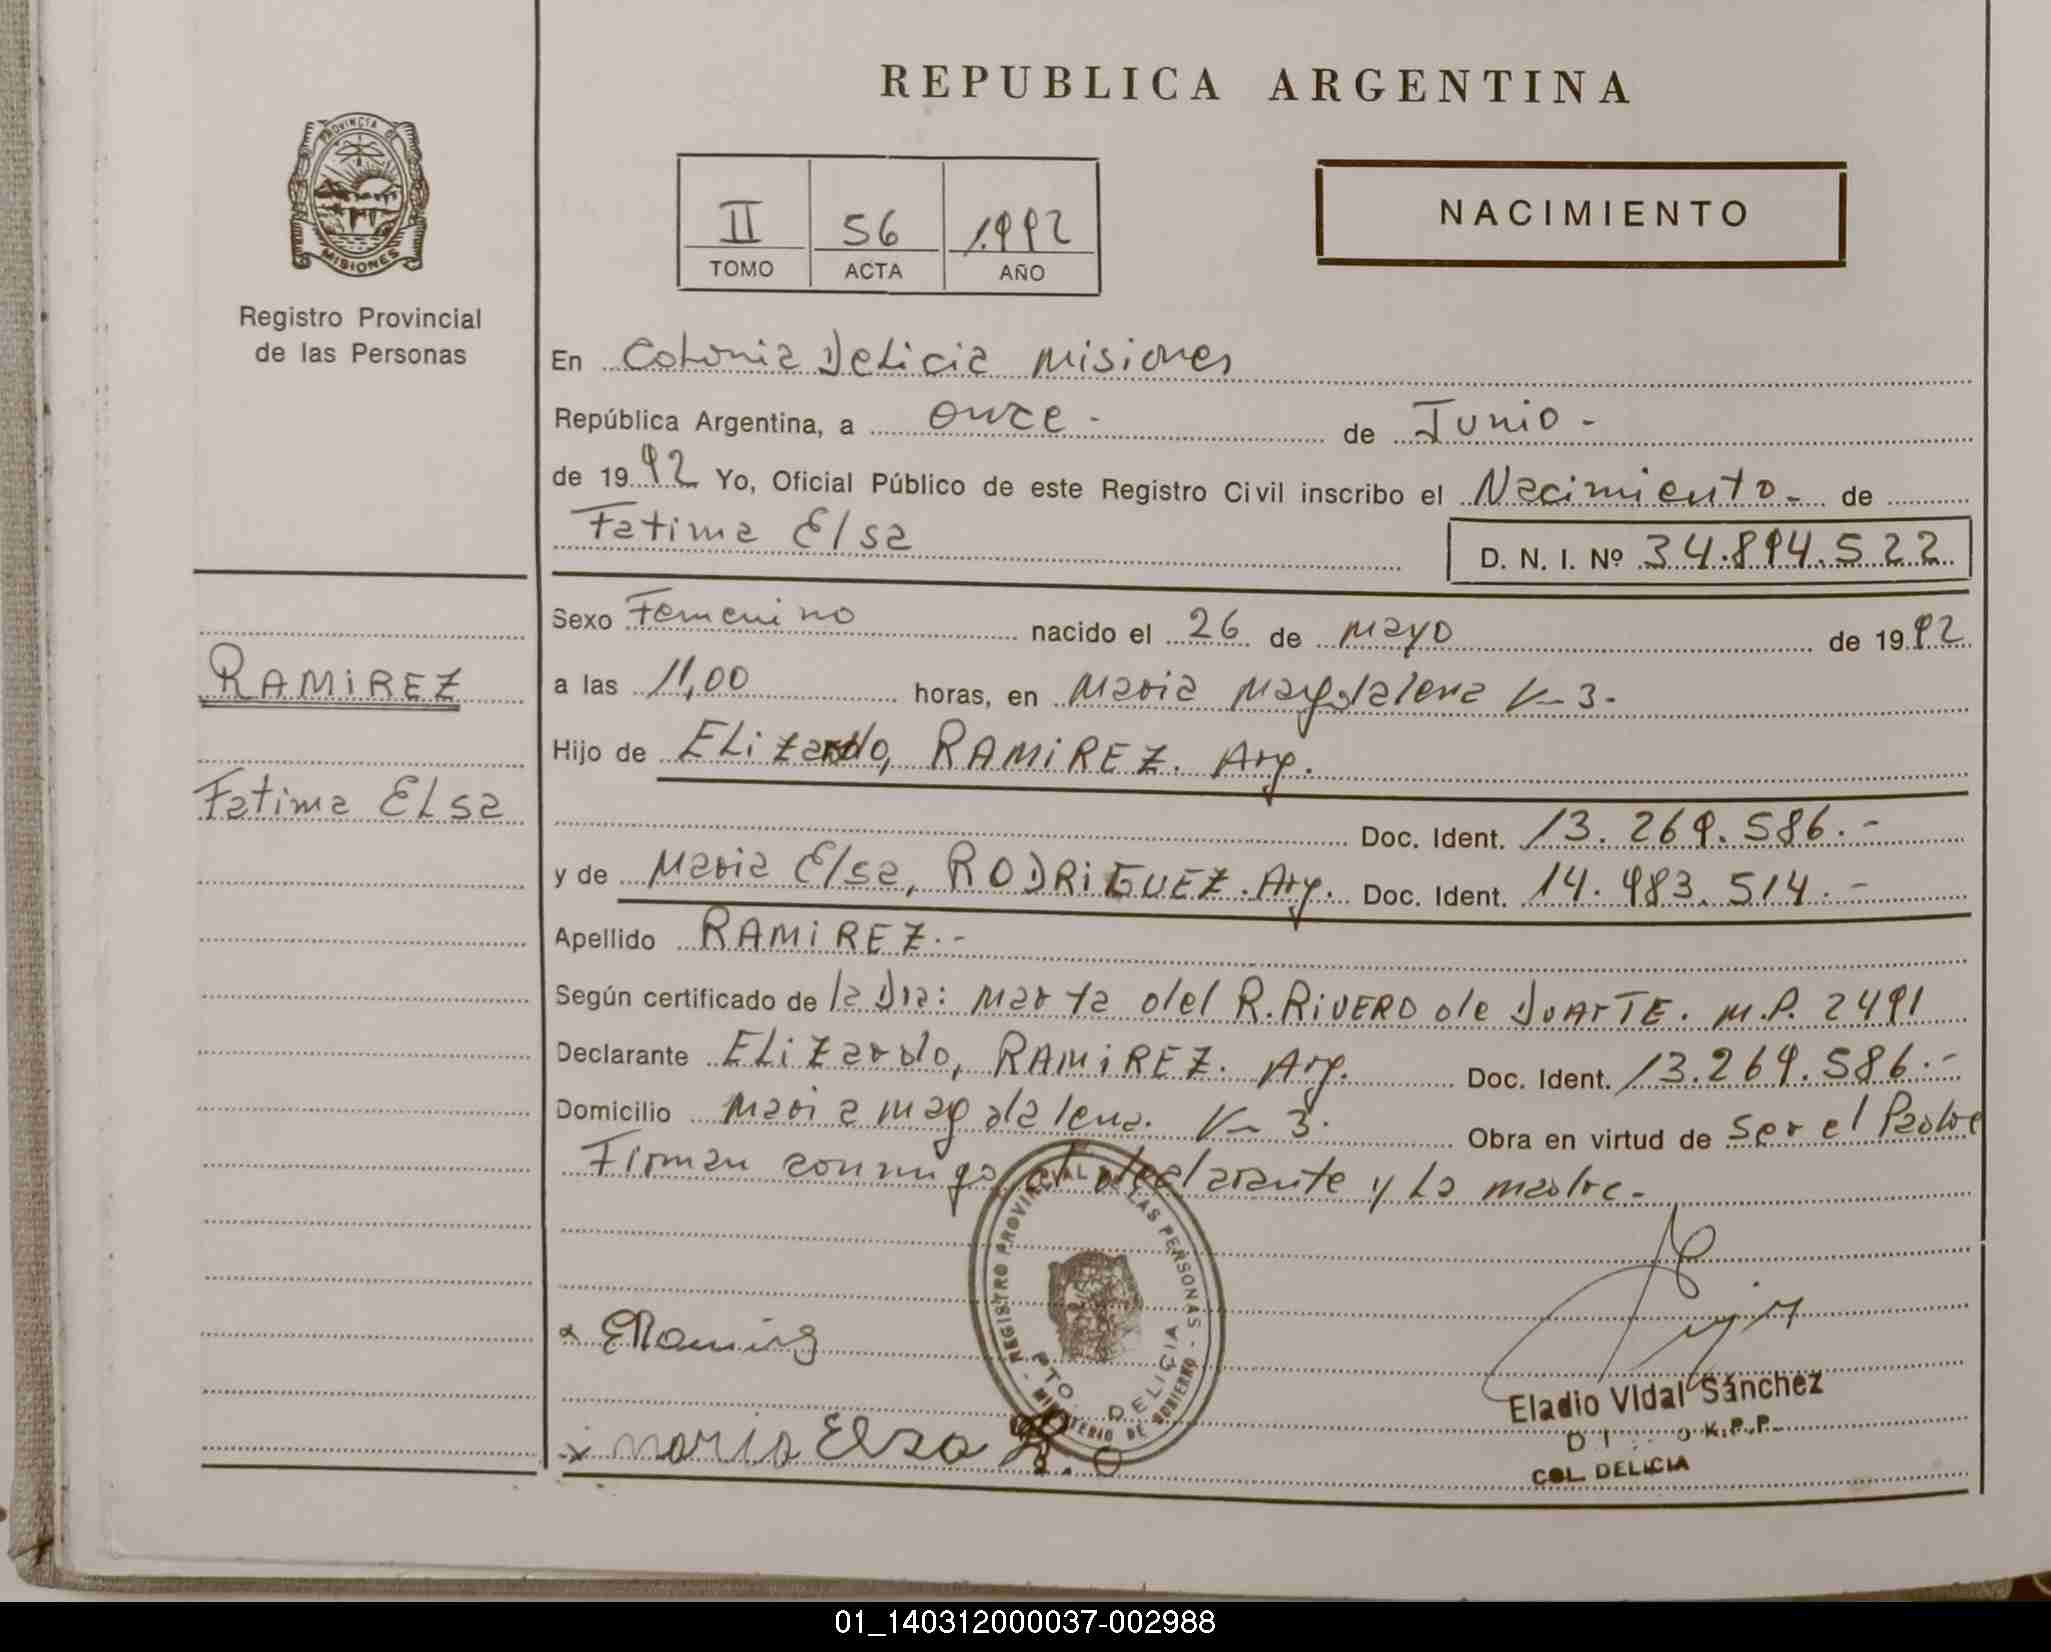 REPUBLICA ARGENTINA
PROVINCIA DE
MISIONES
Registro Provincial
de las Personas
II 56 1.992
TOMO ACTA AÑO
NACIMIENTO
En Colonia Delicia Misiones
República Argentina, a once - de Junio -
de 1992 Yo, Oficial Público de este Registro Civil inscribo el Nacimiento - de
Fatima Elsa
D. N. I. Nº 34.894.522
RAMIREZ
Fatima Elsa
Sexo Femenino nacido el 26 de Mayo de 1992
a las 11,00 horas, en Maria Magdalena K-3.
Hijo de Elizardo, RAMIREZ. Arg.
Doc. Ident. 13.269.586.-
y de Maria Elsa, RODRIGUEZ. Arg. Doc. Ident. 14.983.514.-
Apellido RAMIREZ.-
Según certificado de la Dra: Marta del R. RIVERO de DUARTE. M.P. 2491
Declarante Elizardo, RAMIREZ. Arg. Doc. Ident. 13.269.586.-
Domicilio Maria magdalena. K-3. Obra en virtud de Ser el Padre
Firman conmigo el declarante y La madre.
REGISTRO PROVINCIAL DE LAS PERSONAS - MINISTERIO DE GOBIERNO -
PTO DELICIA
x ERamirez
x Maria Elsa R.
Eladio Vidal Sánchez
R.P.P.
COL. DELICIA
01_140312000037-002988